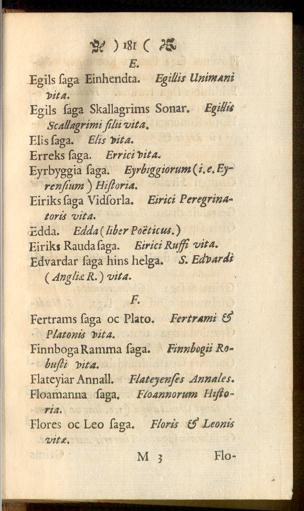 ) 181 (
E.
Egils ſaga Einhendta. Egillis Unimani
vita.
Egils ſaga Skallagrims Sonar. Egillis
Scallagrimi filii vita.
Elis ſaga. Elis vita.
Erreks ſaga. Errici vita.
Eyrbyggia ſaga. Eyrbiggiorum (i. e. Ey-
renſium) Hiſtoria.
Eiriks ſaga Vidforla. Eirici Peregrina-
toris vita.
Edda. Edda (liber Poëticus.)
Eiriks Rauda ſaga. Eirici Ruffi vita.
Edvardar ſaga hins helga. S. Edvardi
(Angliæ R.) vita.
F.
Fertrams ſaga oc Plato. Fertrami &
Platonis vita.
Finnboga Ramma ſaga. Finnbogii Ro-
buſti vita.
Flateyiar Annall. Flateyenſes Annales.
Floamanna ſaga. Floannorum Hiſto-
ria.
Flores oc Leo ſaga. Floris & Leonis
vitæ.
M 3 Flo-